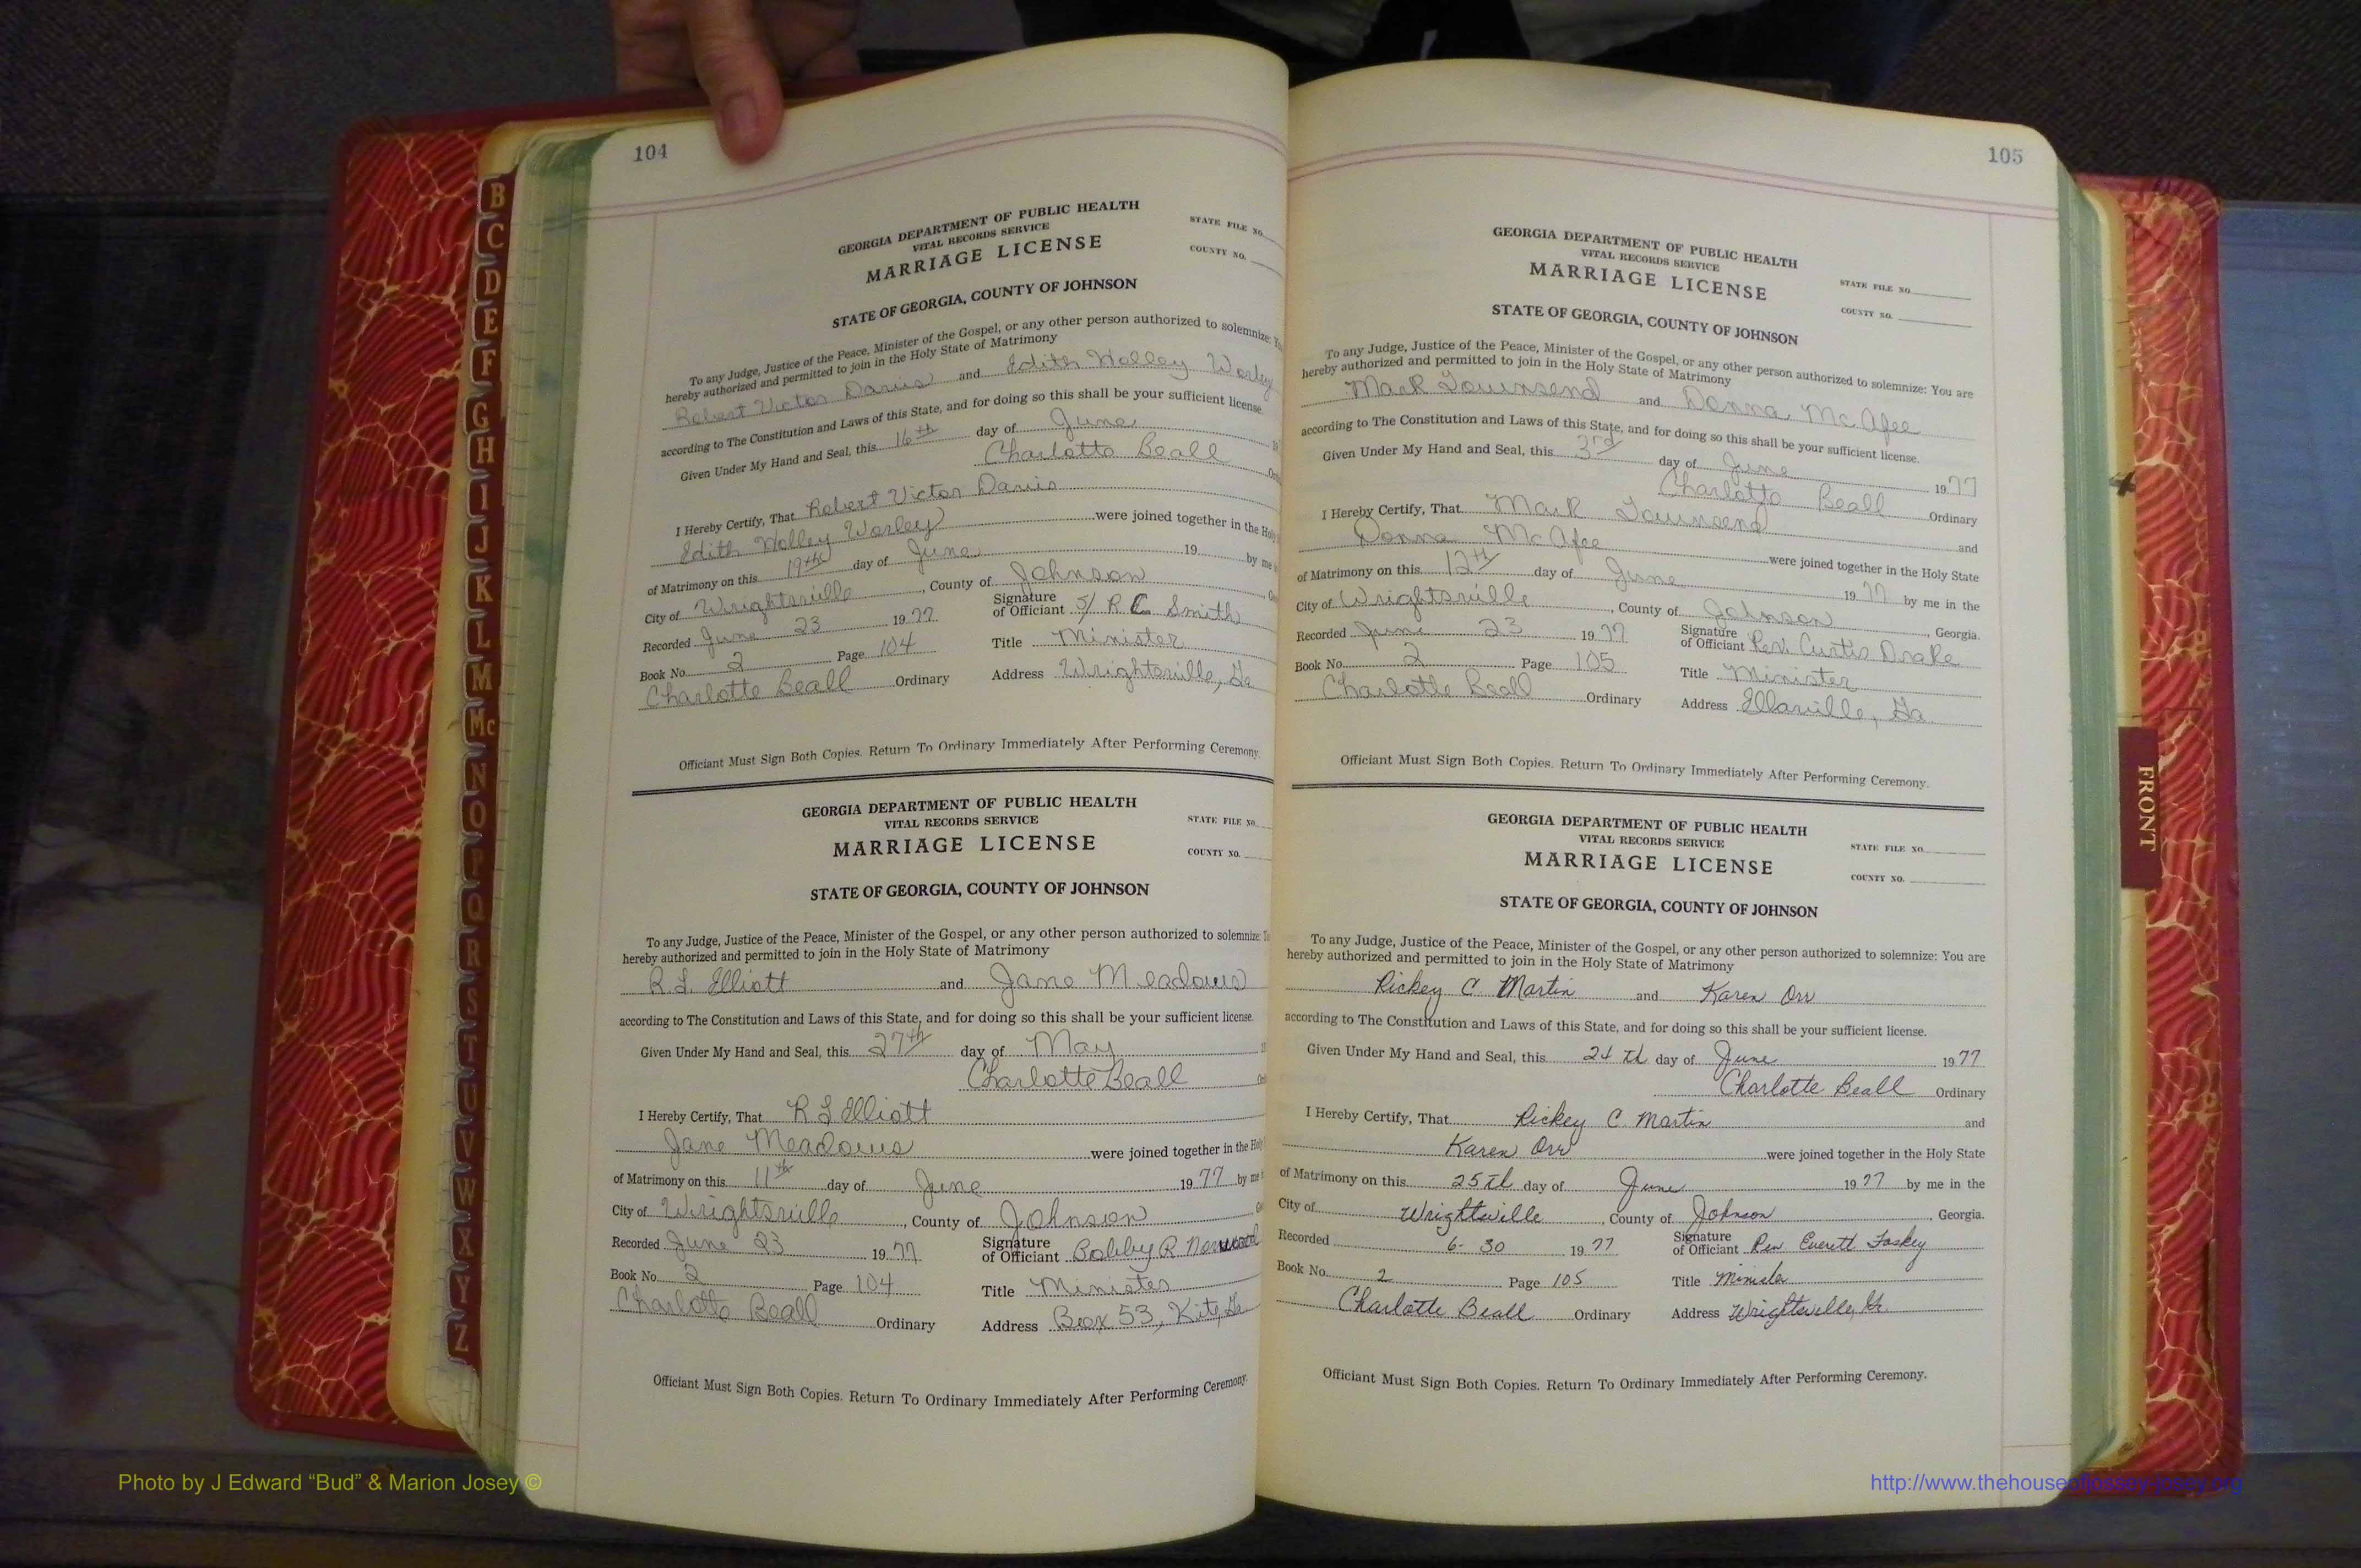 104
GEORGIA DEPARTMENT OF PUBLIC HEALTH
VITAL RECORDS SERVICE
MARRIAGE LICENSE
STATE FILE NO.
COUNTY NO.
STATE OF GEORGIA, COUNTY OF JOHNSON
To any Judge, Justice of the Peace, Minister of the Gospel, or any other person authorized to solemnize:
hereby authorized and permitted to join in the Holy State of Matrimony
Robert Victor Davis and Edith Holley Worley
according to The Constitution and Laws of this State, and for doing so this shall be your sufficient license.
Given Under My Hand and Seal, this 16th day of June
Charlotte Beall
I Hereby Certify, That Robert Victor Davis
Edith Holley Worley were joined together in the Holy
of Matrimony on this 19th day of June 19 by me
City of Wrightsville, County of Johnson
Recorded June 23 1977 Signature of Officiant S/ R C Smith
Book No. 2 Page 104 Title Minister
Charlotte Beall Ordinary Address Wrightsville, Ga
Officiant Must Sign Both Copies. Return To Ordinary Immediately After Performing Ceremony.
GEORGIA DEPARTMENT OF PUBLIC HEALTH
VITAL RECORDS SERVICE
MARRIAGE LICENSE
STATE FILE NO.
COUNTY NO.
STATE OF GEORGIA, COUNTY OF JOHNSON
To any Judge, Justice of the Peace, Minister of the Gospel, or any other person authorized to solemnize:
hereby authorized and permitted to join in the Holy State of Matrimony
R.L. Elliott and Jane Meadows
according to The Constitution and Laws of this State, and for doing so this shall be your sufficient license.
Given Under My Hand and Seal, this 27th day of May
Charlotte Beall
I Hereby Certify, That R L Elliott
Jane Meadows were joined together in the Holy
of Matrimony on this 11th day of June 1977 by me
City of Wrightsville, County of Johnson
Recorded June 23 1977 Signature of Officiant Bobby R Norwood
Book No. 2 Page 104 Title Minister
Charlotte Beall Ordinary Address Box 53, Kite, Ga
Officiant Must Sign Both Copies. Return To Ordinary Immediately After Performing Ceremony.
105
GEORGIA DEPARTMENT OF PUBLIC HEALTH
VITAL RECORDS SERVICE
MARRIAGE LICENSE
STATE FILE NO.
COUNTY NO.
STATE OF GEORGIA, COUNTY OF JOHNSON
To any Judge, Justice of the Peace, Minister of the Gospel, or any other person authorized to solemnize: You are
hereby authorized and permitted to join in the Holy State of Matrimony
Mark Townsend and Donna McAfee
according to The Constitution and Laws of this State, and for doing so this shall be your sufficient license.
Given Under My Hand and Seal, this 3rd day of June 1977
Charlotte Beall Ordinary
I Hereby Certify, That Mark Townsend and
Donna McAfee were joined together in the Holy State
of Matrimony on this 12th day of June 1977 by me in the
City of Wrightsville, County of Johnson, Georgia.
Recorded June 23 1977 Signature of Officiant Rev. Curtis Drake
Book No. 2 Page 105 Title Minister
Charlotte Beall Ordinary Address Ellaville, Ga.
Officiant Must Sign Both Copies. Return To Ordinary Immediately After Performing Ceremony.
GEORGIA DEPARTMENT OF PUBLIC HEALTH
VITAL RECORDS SERVICE
MARRIAGE LICENSE
STATE FILE NO.
COUNTY NO.
STATE OF GEORGIA, COUNTY OF JOHNSON
To any Judge, Justice of the Peace, Minister of the Gospel, or any other person authorized to solemnize: You are
hereby authorized and permitted to join in the Holy State of Matrimony
Rickey C. Martin and Karen Orr
according to The Constitution and Laws of this State, and for doing so this shall be your sufficient license.
Given Under My Hand and Seal, this 24th day of June 1977
Charlotte Beall Ordinary
I Hereby Certify, That Rickey C. Martin and
Karen Orr were joined together in the Holy State
of Matrimony on this 25th day of June 1977 by me in the
City of Wrightsville, County of Johnson, Georgia.
Recorded 6-30 1977 Signature of Officiant Rev Everett Foskey
Book No. 2 Page 105 Title Minister
Charlotte Beall Ordinary Address Wrightsville, Ga.
Officiant Must Sign Both Copies. Return To Ordinary Immediately After Performing Ceremony.
B
C
D
E
F
G
H
I
J
K
L
M
Mc
N
O
P
Q
R
S
T
U
V
W
X
Y
Z
FRONT
Photo by J Edward “Bud” & Marion Josey ©
http://www.thehouseofjossey-josey.org